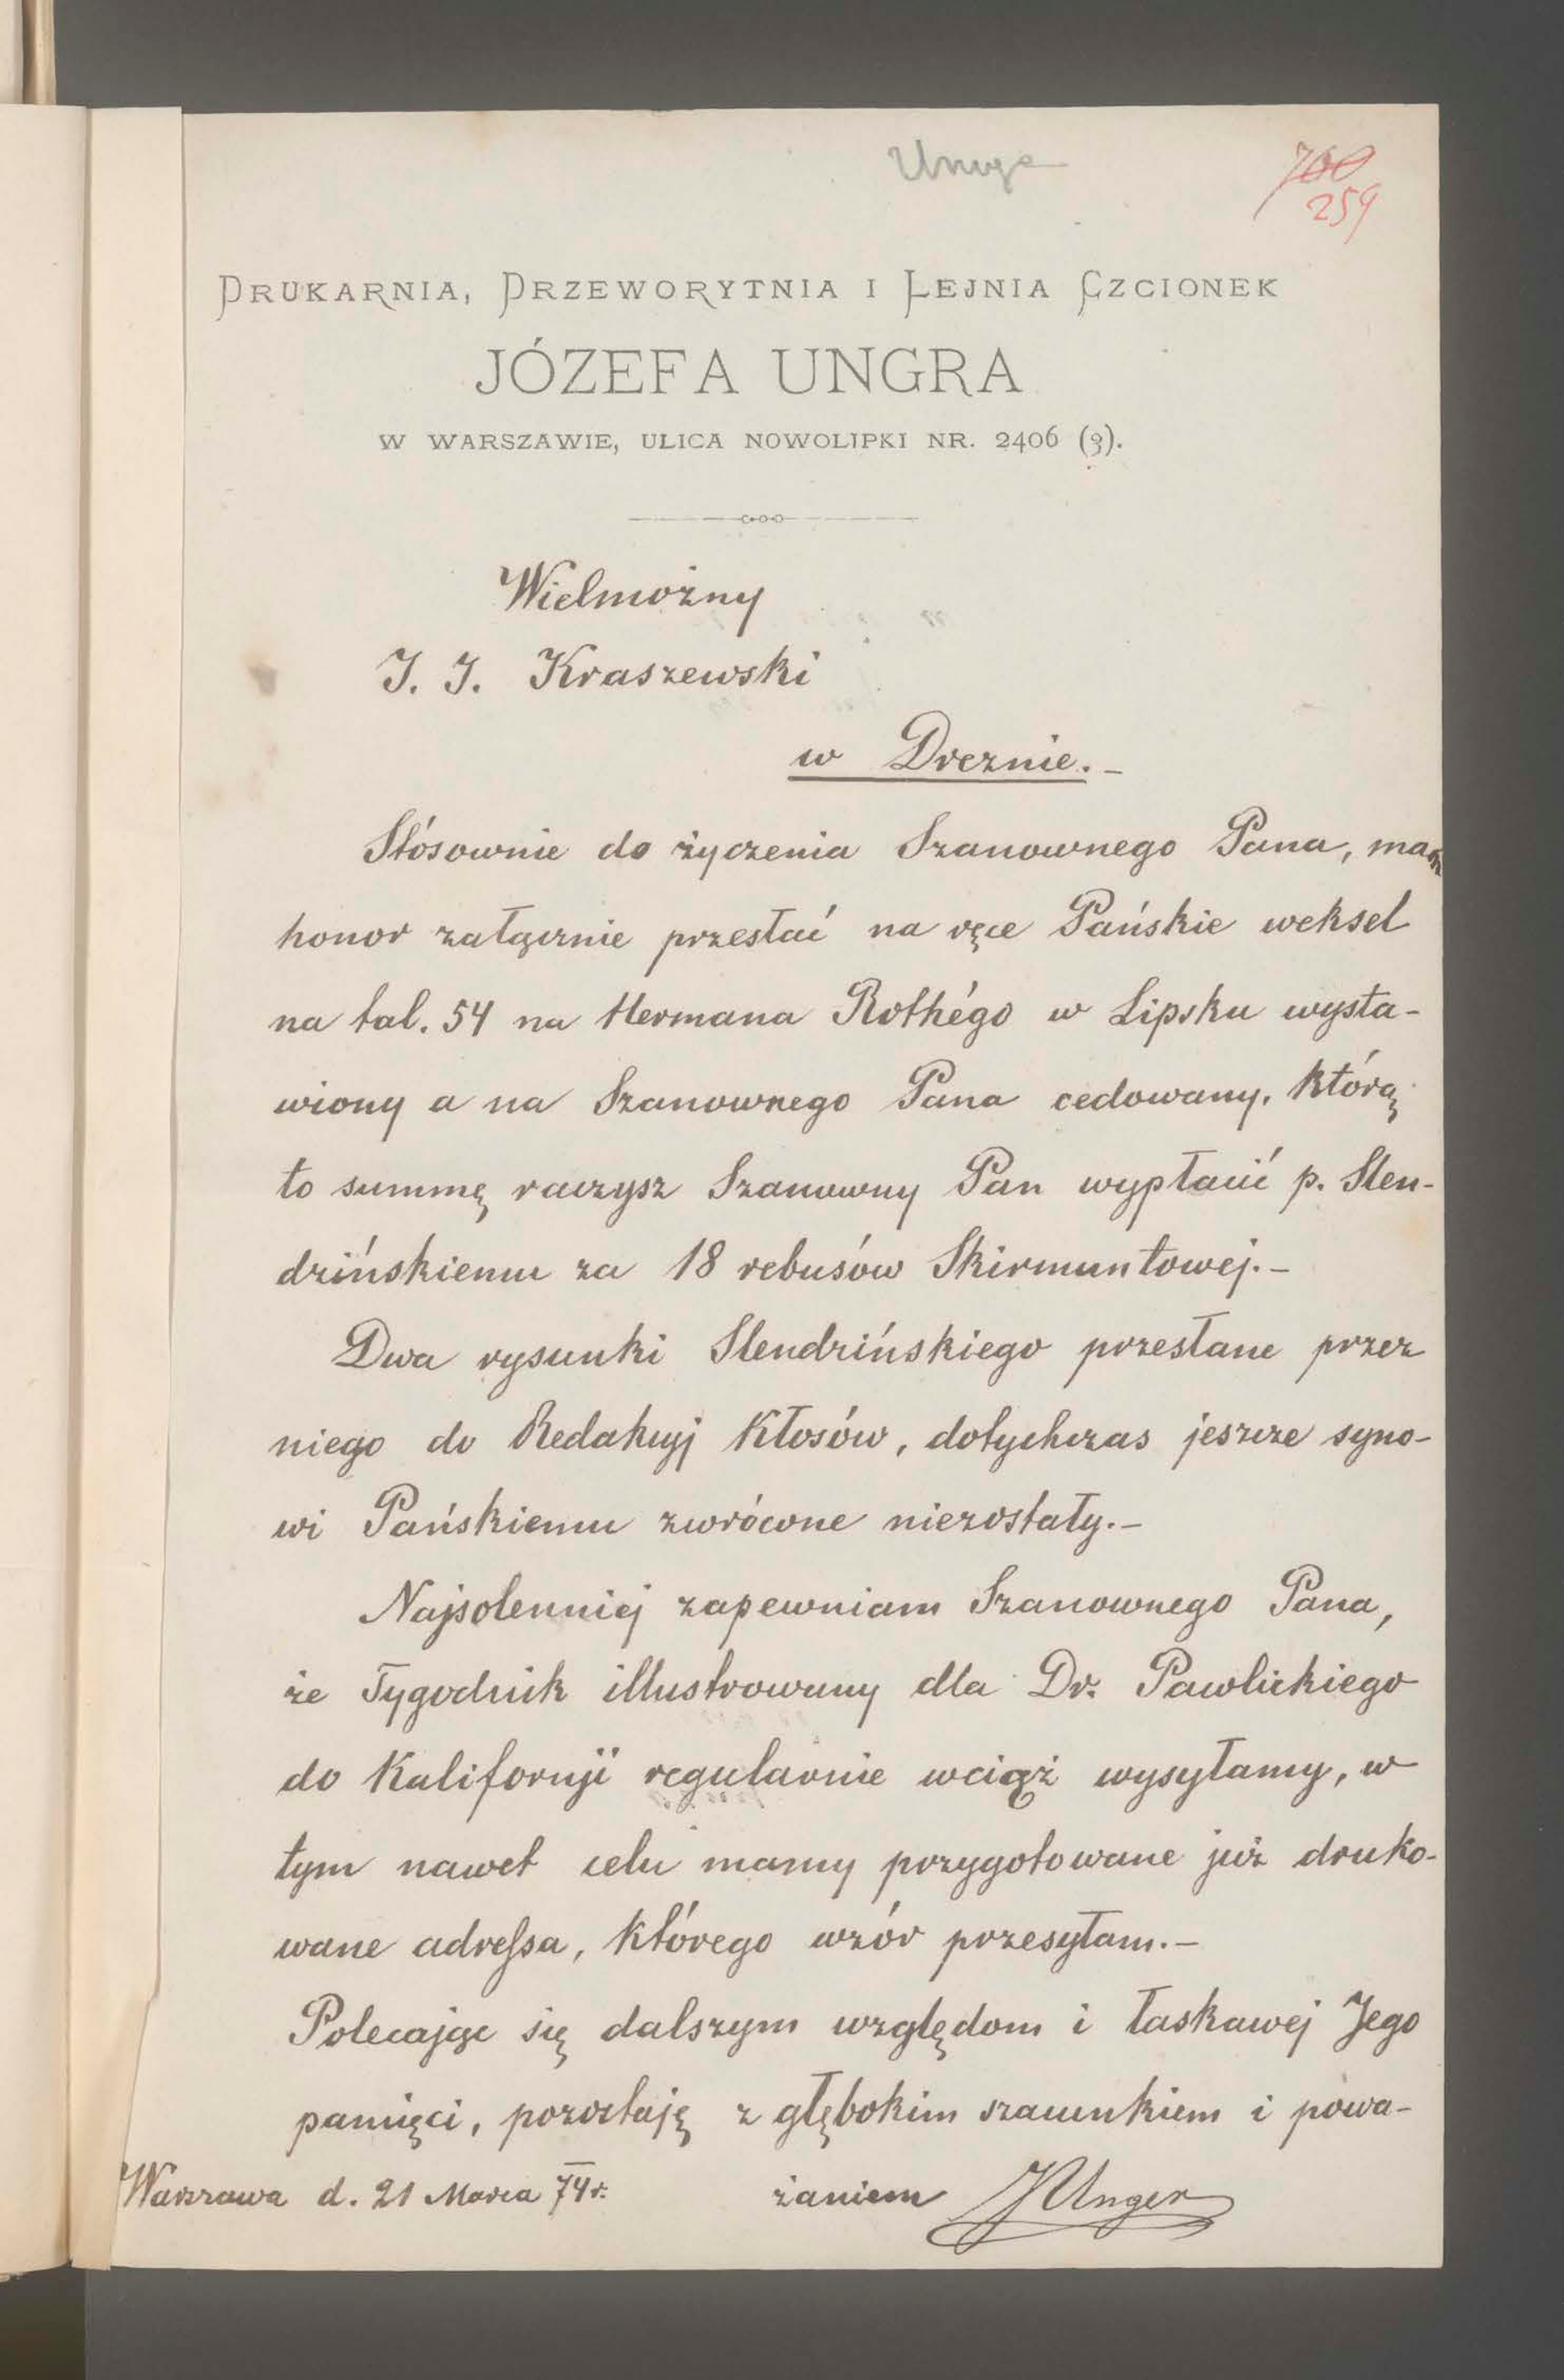 Unge
700
259
DRUKARNIA, DRZEWORYTNIA I LEJNIA CZCIONEK
JÓZEFA UNGRA
W WARSZAWIE, ULICA NOWOLIPKI NR. 2406 (3).
Wielmożny
J. J. Kraszewski
w Dreznie.-
Stósownie do życzenia Szanownego Pana, mam
honor załącznie przesłać na ręce Pańskie weksel
na tal. 54 na Hermana Rothégo w Lipsku wysta-
wiony a na Szanownego Pana cedowany. Którą
to summę raczysz Szanowny Pan wypłacić p. Slen-
dzińskiemu za 18 rebusów Skirmuntowej.-
Dwa rysunki Slendzińskiego przesłane przez
niego do Redakcyj Kłosów, dotychczas jeszcze syno-
wi Pańskiemu zwrócone niezostały.-
Najsolenniej zapewniam Szanownego Pana,
że Tygodnik illustrowany dla Dr. Pawlickiego
do Kalifornji regularnie wciąż wysyłamy, w
tym nawet celu mamy przygotowane już druko-
wane adressa, którego wzór przesyłam.-
Polecając się dalszym względom i łaskawej Jego
pamięci, pozostaję z głębokim szacunkiem i powa-
żaniem JUnger
Warszawa d. 21 Marca 74 r.